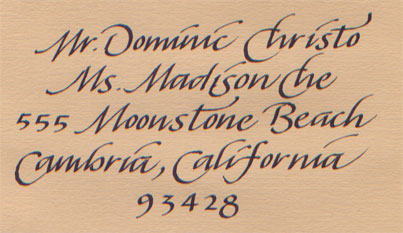 Mr. Dominic Christo
Ms. Madison Che
555 Moonstone Beach
Cambria, California
93428